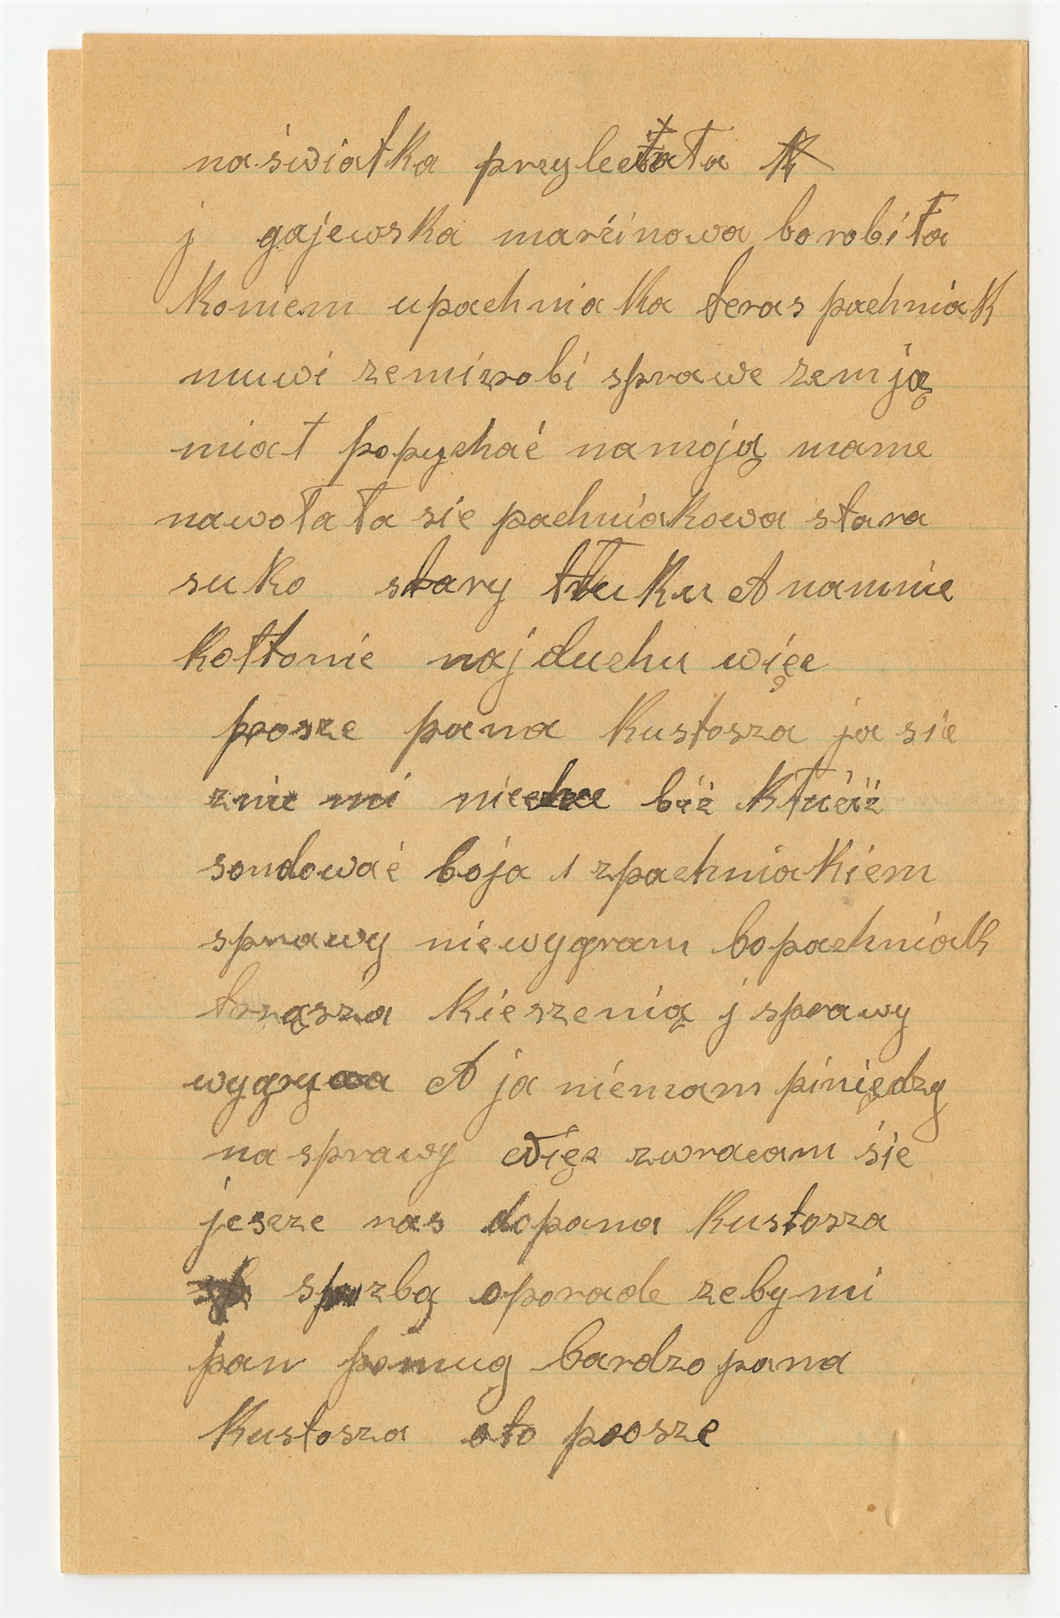 naświatka przyleciała
j gajewska marźinowa borobiła
koniem upachniaka teras pachniak
muwi zemizrobi sprawe zemją
miał popychać namoją mame
nawołała sie pachniakowa stara
suko stary tłuku A namnie
kołtonie najduchu więc
prosze pana kustosza ja sie
znie mi niechce biż
sondować boja 1 zpachniakiem
sprawy niewygram bopachniak
trząsza kieszenią j sprawy
wygrywa A ja niemam piniędzy
na sprawy Więz zwracam śie
jescze ras dopana kustosza
sprozbą oporade zebymi
pan pomug bardzo pana
kustosza oto prosze